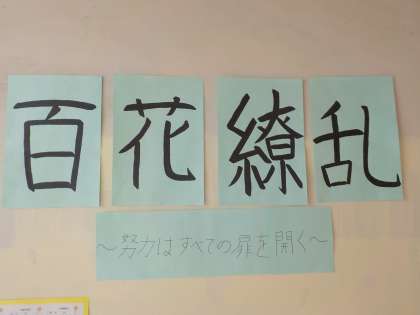 百花繚乱
～努力はすべての扉を開く～